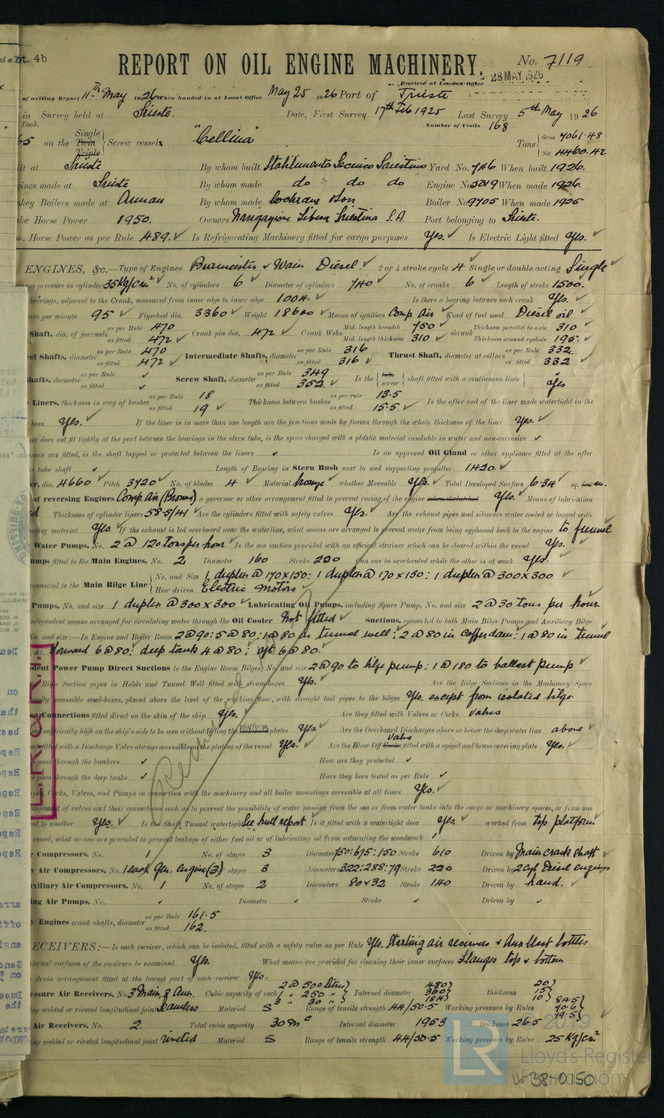 4b
REPORT ON OIL ENGINE MACHINERY.
No. 7119
Received at London Office 28 MAY 1926
of writing Report 11th May 1926 When handed in at Local Office May 25 1926 Port of Trieste
in Survey held at Trieste. Date, First Survey 17th Feb 1925 Last Survey 5th May 1926
Book. Number of Visits 168
on the Single Twin Triple Screw vessel "Cellina" Tons Gross 7061.48 Net 4460.42
at Trieste By whom built Stabilimento Tecnico Triestino Yard No. 746 When built 1926.
made at Trieste By whom made do do do Engine No. 3219 When made 1926.
key Boilers made at Annan By whom made Cochrane Son Boiler No. 9705 When made 1905
Horse Power 1950. Owners Navigazione Libera Triestina S.A Port belonging to Trieste.
Horse Power as per Rule 489. Is Refrigerating Machinery fitted for cargo purposes Yes. Is Electric Light fitted Yes.
ENGINES, &c.—Type of Engines Burmeister & Wain Diesel. 2 or 4 stroke cycle 4 Single or double acting Single
pressure in cylinders 35 Kg/cm² No. of cylinders 6 Diameter of cylinders 740 No. of cranks 6 Length of stroke 1500.
bearings, adjacent to the Crank, measured from inner edge to inner edge 1004. Is there a bearing between each crank Yes.
per minute 95 Flywheel dia. 3360 Weight 18600 Means of ignition Comp Air Kind of fuel used Diesel oil
Shaft, dia. of journals as per Rule 470 as fitted 472 Crank pin dia. 472 Crank Webs Mid. length breadth 750 Mid. length thickness 310 shrunk Thickness parallel to axis 310 Thickness around eyehole 195.
Shafts, diameter as per Rule 470 as fitted 472 Intermediate Shafts, diameter as per Rule 316 as fitted 316 Thrust Shaft, diameter at collars as per Rule 332 as fitted 332
Shafts, diameter as per Rule as fitted Screw Shaft, diameter as per Rule 349 as fitted 352. Is the screw shaft fitted with a continuous liner Yes
Liners, thickness in way of bushes as per Rule 18 as fitted 19 Thickness between bushes as per rule 13.5 as fitted 15.5 Is the after end of the liner made watertight in the
Yes. If the liner is in more than one length are the junctions made by fusion through the whole thickness of the liner Yes.
does not fit tightly at the part between the bearings in the stern tube, is the space charged with a plastic material insoluble in water and non-corrosive
are fitted, is the shaft lapped or protected between the liners Is an approved Oil Gland or other appliance fitted at the after
tube shaft Length of Bearing in Stern Bush next to and supporting propeller 1420.
dia. 4660 Pitch 3720 No. of blades 4 Material bronze whether Moveable Yes. Total Developed Surface 6.34 sq.
of reversing Engines Comp Air (Brown) a governor or other arrangement fitted to prevent racing of the engine Yes. Means of lubrication
Thickness of cylinder liners 58.5/44 Are the cylinders fitted with safety valves Yes. Are the exhaust pipes and silencers water cooled or lagged with
material Yes. If the exhaust is led overboard near the waterline, what means are arranged to prevent water from being syphoned back to the engine to funnel
Water Pumps, No. 2 @ 120 tons per hour Is the sea suction provided with an efficient strainer which can be cleared within the vessel Yes.
fitted to the Main Engines, No. 2 Diameter 160 Stroke 220 Can one be overhauled while the other is at work Yes.
connected to the Main Bilge Line No. and Size 1 duplex @ 170x150: 1 duplex @ 170x150: 1 duplex @ 300x300 How driven Electric Motors
Pumps, No. and size 1 duplex @ 300x300 Lubricating Oil Pumps, including Spare Pump, No. and size 2 @ 30 tons per hour.
independent means arranged for circulating water through the Oil Cooler Not fitted Suctions, connected to both Main Bilge Pumps and Auxiliary Bilge
No. and size:—In Engine and Boiler Room 2 @ 90: 5 @ 80: 1 @ 80 in tunnel well: 2 @ 80 in cofferdam: 1 @ 80 in tunnel
forward 6 @ 80: deep tank 4 @ 80: aft 6 @ 80.
Power Pump Direct Suctions to the Engine Room Bilges, No. and size 2 @ 90 to bilge pump: 1 @ 180 to ballast pump
Bilge Suction pipes in Holds and Tunnel Well fitted with strum-boxes Yes. Are the Bilge Suctions in the Machinery Space
accessible mud-boxes, placed above the level of the working floor, with straight tail pipes to the bilges Yes. except from isolated bilge
Connections fitted direct on the skin of the ship Yes. Are they fitted with Valves or Cocks Valves
high on the ship's side to be seen without lifting the platform plates Yes Are the Overboard Discharges above or below the deep water line above
fitted with a Discharge Valve always accessible on the plating of the vessel Yes. Are the Blow Off Valves fitted with a spigot and brass covering plate Yes.
pass through the bunkers How are they protected
pass through the deep tanks Have they been tested as per Rule
Cocks, Valves, and Pumps in connection with the machinery and all boiler mountings accessible at all times Yes.
of valves and their connections such as to prevent the possibility of water passing from the sea or from water tanks into the cargo or machinery spaces, or from one
to another Yes. Is the Shaft Tunnel watertight See hull report Is it fitted with a watertight door Yes worked from top platform
vessel, what means are provided to prevent leakage of either fuel oil or of lubricating oil from saturating the woodwork
Compressors, No. 1 No. of stages 3 Diameters 750: 675: 150 Stroke 610 Driven by Main crank shaft
Air Compressors, No. 1 each Gen. engine (3) No. of stages 3 Diameters 322: 288: 79 Stroke 220 Driven by 2 cyl Diesel engines
Auxiliary Air Compressors, No. 1 No. of stages 2 Diameters 80x32 Stroke 140 Driven by hand.
Air Pumps, No. Diameter Stroke Driven by
Engines crank shafts, diameter as per Rule 161.5 as fitted 162.
RECEIVERS:—Is each receiver, which can be isolated, fitted with a safety valve as per Rule Yes. Starting air receivers & Aux blast bottles
internal surfaces of the receivers be examined Yes. What means are provided for cleaning their inner surfaces Flanges top & bottom
drain arrangement fitted at the lowest part of each receiver Yes.
Pressure Air Receivers, No. 3 Main, 3 Aux. Cubic capacity of each 2 @ 500 litres 250 30 Internal diameter thickness
welded or riveted longitudinal joint seamless Material S Range of tensile strength 44/50.5 Working pressure by Rules
Air Receivers, No. 2. Total cubic capacity 30 m³ Internal diameter 1953 thickness 26.5
welded or riveted longitudinal joint riveted Material S Range of tensile strength 44/50.5 Working pressure by Rules 25 Kg/cm²
© 2019
Lloyd's Register
Foundation
W38-0150